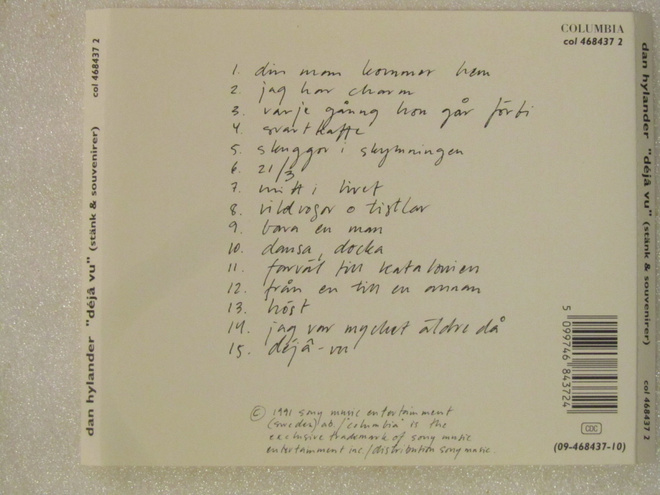 dan hylander "déjâ vu" (stänk & souvenirer) col 468437 2
COLUMBIA
col 468437 2
1. din man kommer hem
2. jag har charm
3. varje gånng hon går förbi
4. svart kaffe
5. skuggor i skymningen
6. 21/3
7. mitt i livet
8. vildrosor o tistlar
9. bara en man
10. dansa, docka
11. farväl till katalonien
12. från en till en annan
13. höst
14. jag var mycket äldre då
15. déjâ-vu
© 1991 sony music entertainment
(sweden) ab. / "columbia" is the
exclusive trademark of sony music
entertainment inc / distribution sony music.
5 099746 843724
CDC
(09-468437-10)
dan hylander "déjâ vu" (stänk & souvenirer) col 468437 2